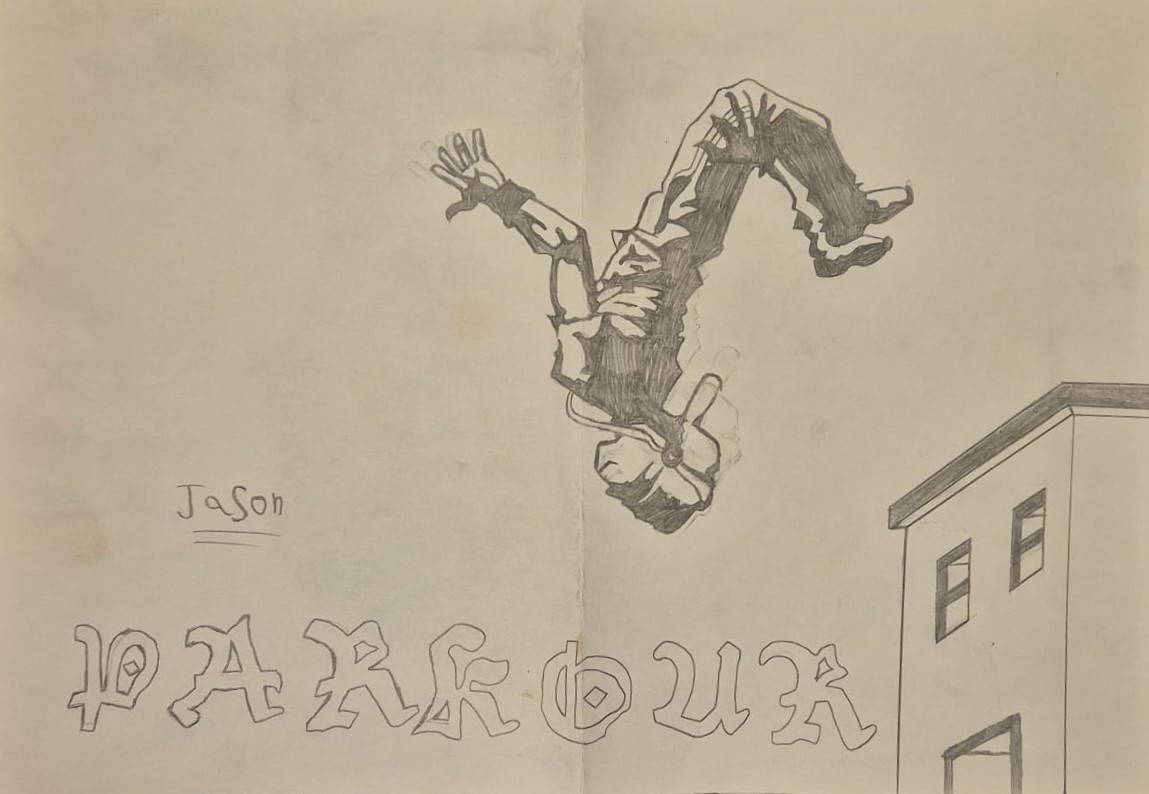 Jason
PARKOUR